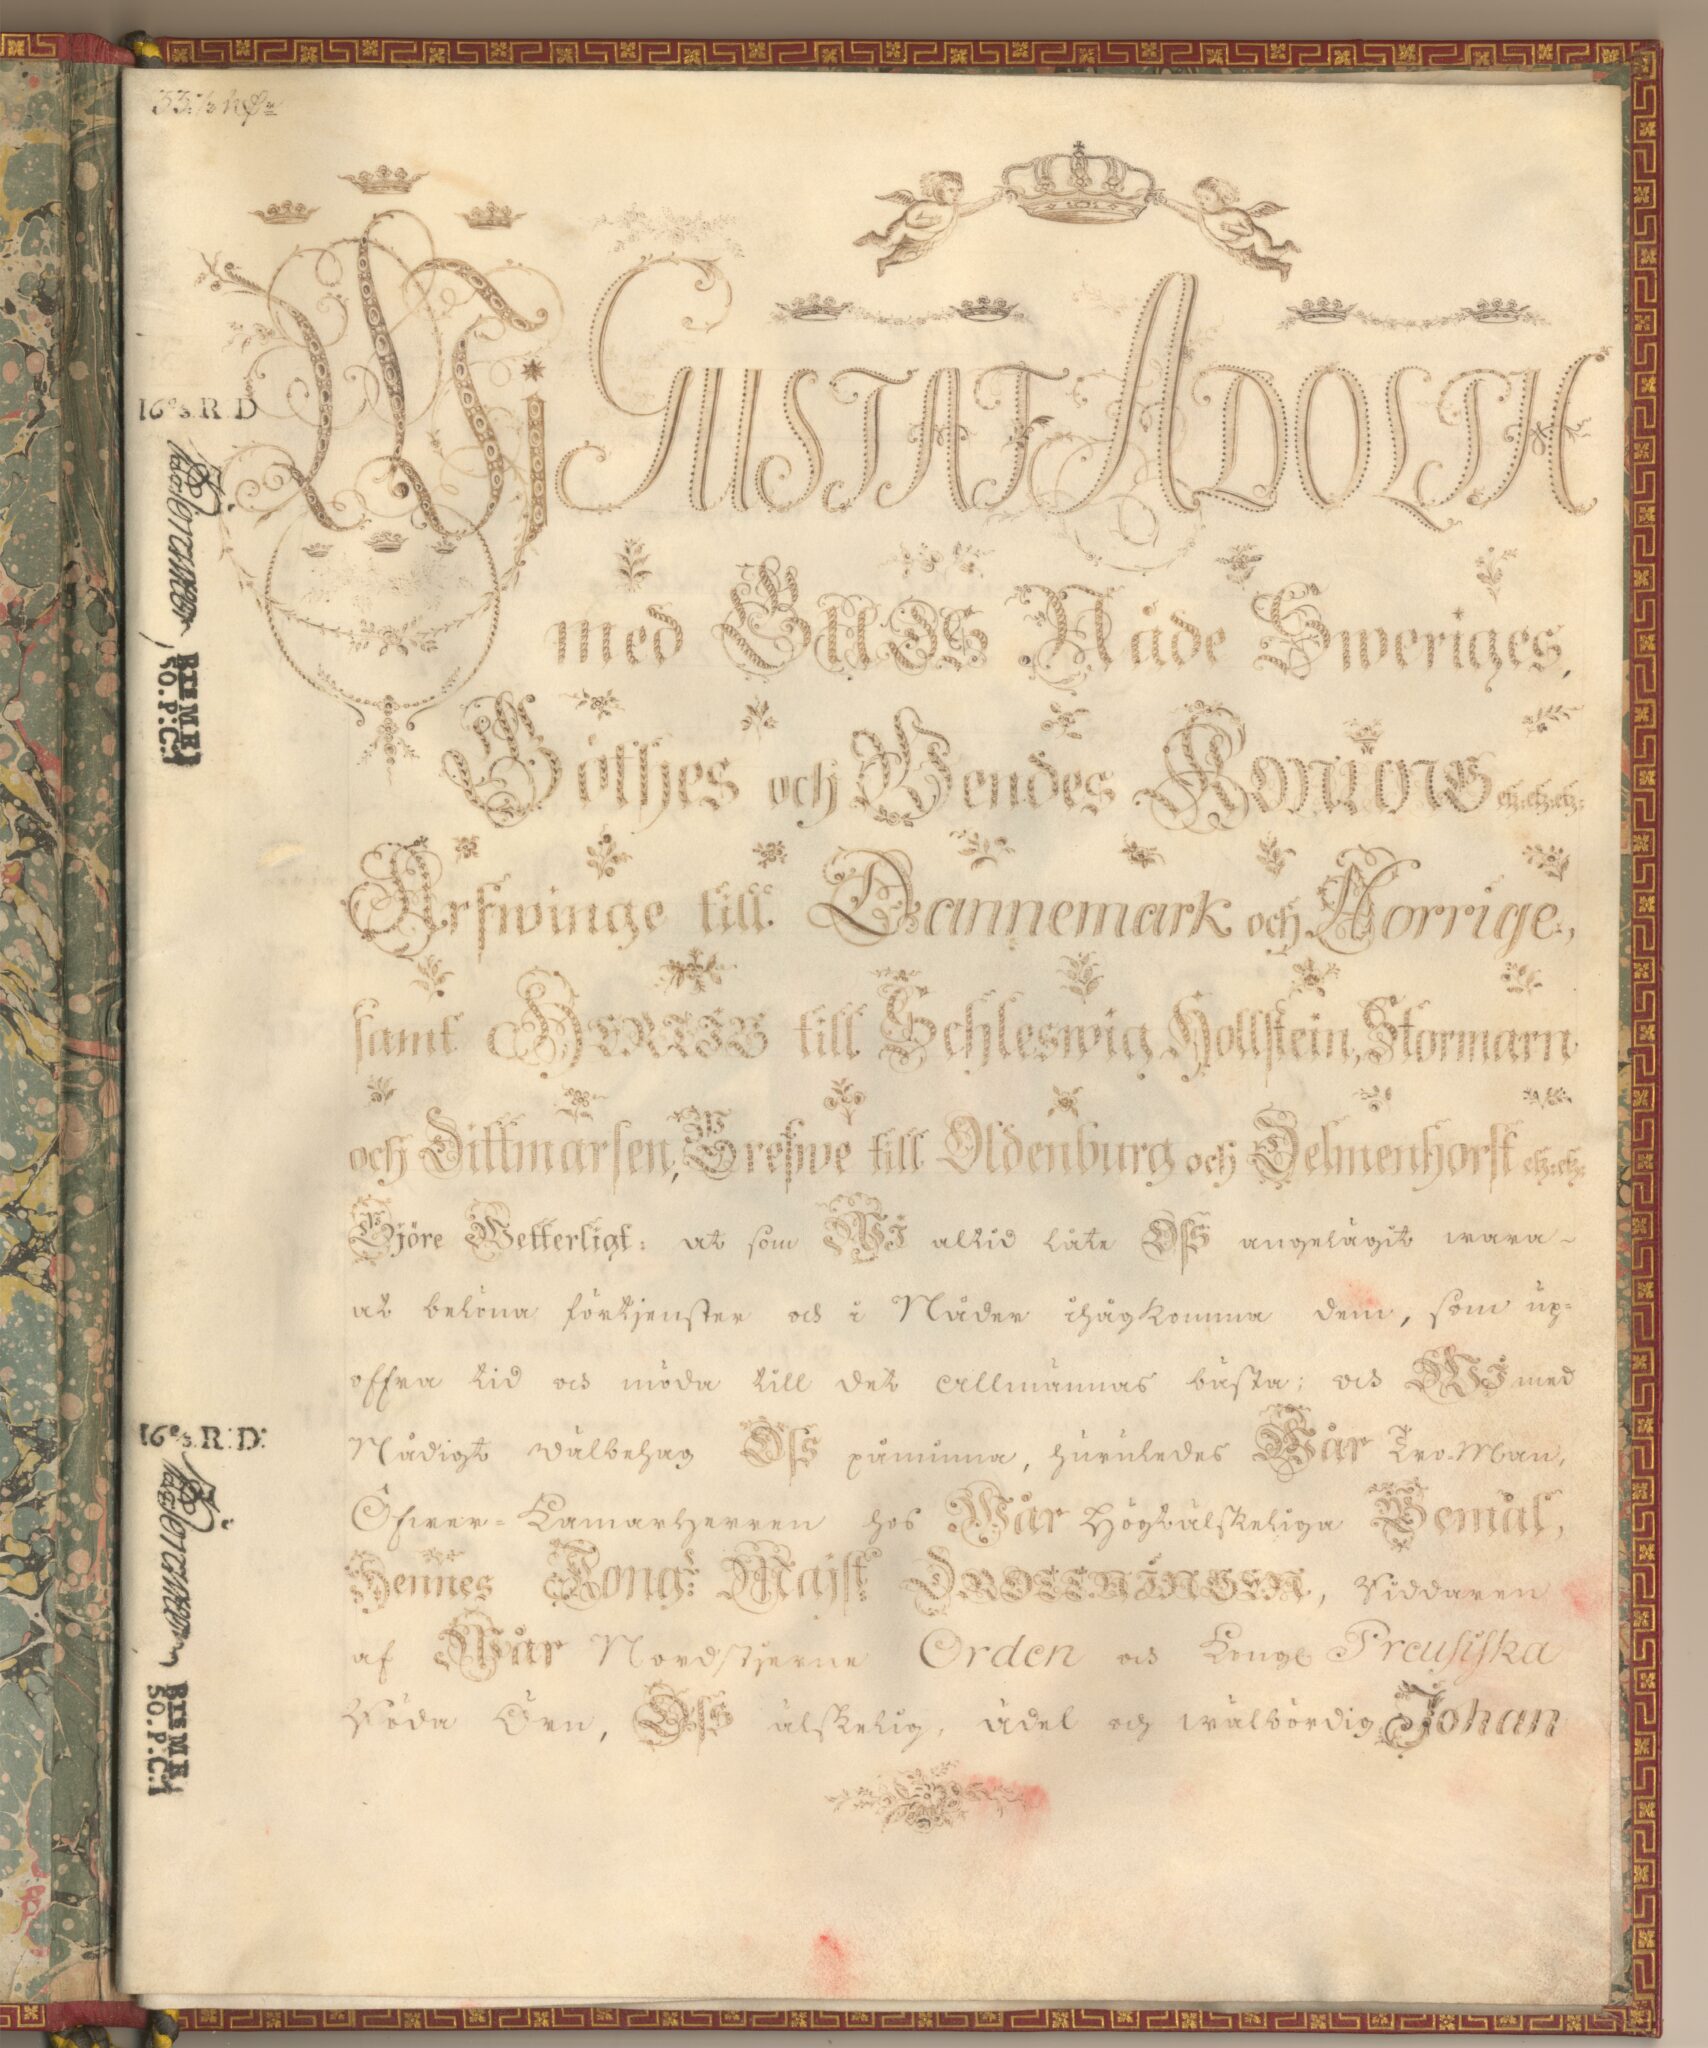 16⅔. R: D
Wi GUSTAF ADOLPH
med GUDS Nåde Sweriges,
Göthes och Wendes KONUNG etz: etz: etz:
Arfwinge till Dannemark och Norrige,
samt HERTIG till Schleswig Hollstein, Stormarn
och Dittmarsen, Grefwe till Oldenburg och Delmenhorst etz: etz:
Gjöre Wetterligt: at som WI altid låte Oss angelägit wara
at belöna förtjenster och i Nåder ihågkomma dem, som up-
offra tid och möda till det Allmännas bästa; och WI med
Nådigt Wälbehag Oss påminna, huruledes Wår Tro-Man,
Öfwer-Kamarherren hos Wår Högtälskeliga Gemål,
Hennes Kongl: Majst DROTTNINGEN, Riddaren
af Wår Nordstjerne Orden och Kongl Preussiska
Röda Örn, Oss älskelig, ädel och wälbördig Johan
BTS M E
50. P: C:
16⅔. R: D:
BTS M E
50. P: C: